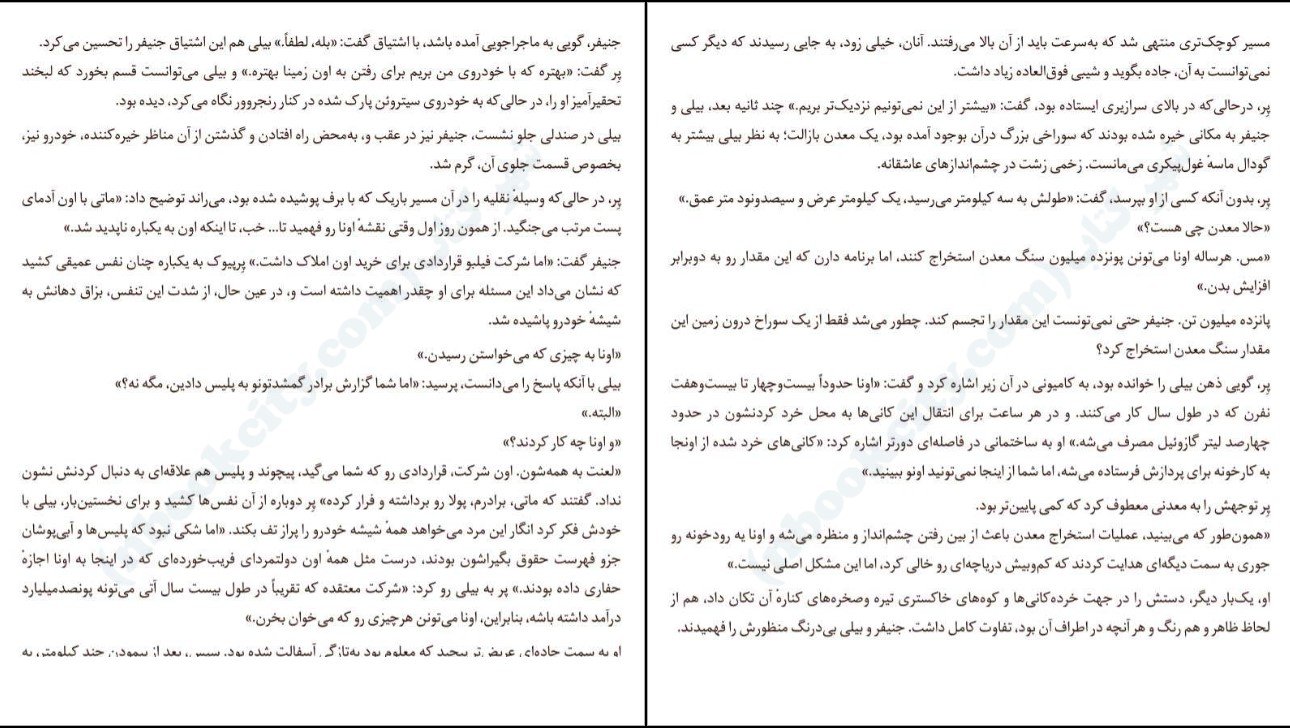 جنیفر، گویی به ماجراجویی آمده باشد، با اشتیاق گفت: «بله، لطفاً.» بیلی هم این اشتیاق جنیفر را تحسین می‌کرد.
پِر گفت: «بهتره که با خودروی من بریم برای رفتن به اون زمینا بهتره.» و بیلی می‌توانست قسم بخورد که لبخند
تحقیرآمیز او را، در حالی‌که به خودروی سیتروئن پارک شده در کنار رنجروور نگاه می‌کرد، دیده بود.
بیلی در صندلی جلو نشست، جنیفر نیز در عقب و، به‌محض راه افتادن و گذشتن از آن مناظر خیره‌کننده، خودرو نیز،
بخصوص قسمت جلوی آن، گرم شد.
پِر، در حالی‌که وسیلهٔ نقلیه را در آن مسیر باریک که با برف پوشیده شده بود، می‌راند توضیح داد: «ماتی با اون آدمای
پست مرتب می‌جنگید. از همون روز اول وقتی نقشهٔ اونا رو فهمید تا... خب، تا اینکه اون به یکباره ناپدید شد.»
جنیفر گفت: «اما شرکت فیلبو قراردادی برای خرید اون املاک داشت.» پِرپیوک به یکباره چنان نفس عمیقی کشید
که نشان می‌داد این مسئله برای او چقدر اهمیت داشته است و، در عین حال، از شدت این تنفس، بزاق دهانش به
شیشهٔ خودرو پاشیده شد.
«اونا به چیزی که می‌خواستن رسیدن.»
بیلی با آنکه پاسخ را می‌دانست، پرسید: «اما شما گزارش برادر گمشدتونو به پلیس دادین، مگه نه؟»
«البته.»
«و اونا چه کار کردند؟»
«لعنت به همه‌شون. اون شرکت، قراردادی رو که شما می‌گید، پیچوند و پلیس هم علاقه‌ای به دنبال کردنش نشون
نداد. گفتند که ماتی، برادرم، پولا رو برداشته و فرار کرده» پِر دوباره از آن نفس‌ها کشید و برای نخستین‌بار، بیلی با
خودش فکر کرد انگار این مرد می‌خواهد همهٔ شیشه خودرو را پراز تف بکند. «اما شکی نبود که پلیس‌ها و آبی‌پوشان
جزو فهرست حقوق بگیراشون بودند، درست مثل همهٔ اون دولتمردای فریب‌خورده‌ای که در اینجا به اونا اجازهٔ
حفاری داده بودند.» پر به بیلی رو کرد: «شرکت معتقده که تقریباً در طول بیست سال آتی می‌تونه پونصدمیلیارد
درآمد داشته باشه، بنابراین، اونا می‌تونن هرچیزی رو که می‌خوان بخرن.»
او به سمت جاده‌ای عریض‌تر پیچید که معلوم بود به‌تازگی آسفالت شده بود. سپس، بعد از پیمودن چند کیلومتر، به
مسیر کوچک‌تری منتهی شد که به‌سرعت باید از آن بالا می‌رفتند. آنان، خیلی زود، به جایی رسیدند که دیگر کسی
نمی‌توانست به آن، جاده بگوید و شیبی فوق‌العاده زیاد داشت.
پِر، درحالی‌که در بالای سرازیری ایستاده بود، گفت: «بیشتر از این نمی‌تونیم نزدیک‌تر بریم.» چند ثانیه بعد، بیلی و
جنیفر به مکانی خیره شده بودند که سوراخی بزرگ درآن بوجود آمده بود، یک معدن بازالت؛ به نظر بیلی بیشتر به
گودال ماسهٔ غول‌پیکری می‌مانست. زخمی زشت در چشم‌اندازهای عاشقانه.
پِر، بدون آنکه کسی از او بپرسد، گفت: «طولش به سه کیلومتر می‌رسید، یک کیلومتر عرض و سیصدونود متر عمق.»
«حالا معدن چی هست؟»
«مس. هرساله اونا می‌تونن پونزده میلیون سنگ معدن استخراج کنند، اما برنامه دارن که این مقدار رو به دوبرابر
افزایش بدن.»
پانزده میلیون تن. جنیفر حتی نمی‌تونست این مقدار را تجسم کند. چطور می‌شد فقط از یک سوراخ درون زمین این
مقدار سنگ معدن استخراج کرد؟
پِر، گویی ذهن بیلی را خوانده بود، به کامیونی در آن زیر اشاره کرد و گفت: «اونا حدوداً بیست‌وچهار تا بیست‌وهفت
نفرن که در طول سال کار می‌کنند. و در هر ساعت برای انتقال این کانی‌ها به محل خرد کردنشون در حدود
چهارصد لیتر گازوئیل مصرف می‌شه.» او به ساختمانی در فاصله‌ای دورتر اشاره کرد: «کانی‌های خرد شده از اونجا
به کارخونه برای پردازش فرستاده می‌شه، اما شما از اینجا نمی‌تونید اونو ببینید.»
پِر توجهش را به معدنی معطوف کرد که کمی پایین‌تر بود.
«همون‌طور که می‌بینید، عملیات استخراج معدن باعث از بین رفتن چشم‌انداز و منظره می‌شه و اونا یه رودخونه رو
جوری به سمت دیگه‌ای هدایت کردند که کم‌وبیش دریاچه‌ای رو خالی کرد، اما این مشکل اصلی نیست.»
او، یک‌بار دیگر، دستش را در جهت خرده‌کانی‌ها و کوه‌های خاکستری تیره وصخره‌های کنارهٔ آن تکان داد، هم از
لحاظ ظاهر و هم رنگ و هر آنچه در اطراف آن بود، تفاوت کامل داشت. جنیفر و بیلی بی‌درنگ منظورش را فهمیدند.
شهر کتاب (nbookcity.com)
شهر کتاب (nbookcity.com)